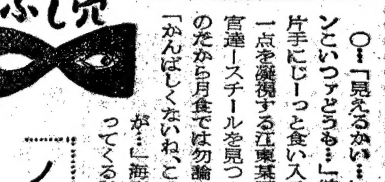 ふし穴
○…「見えるかい…
ンこいつァどうも…」
片手にじーっと食い入
一点を凝視する江東某
官達―スチールを見つ
のだから月食では勿論
「かんばしくないね、こ
が…」海
ってくる
ノ